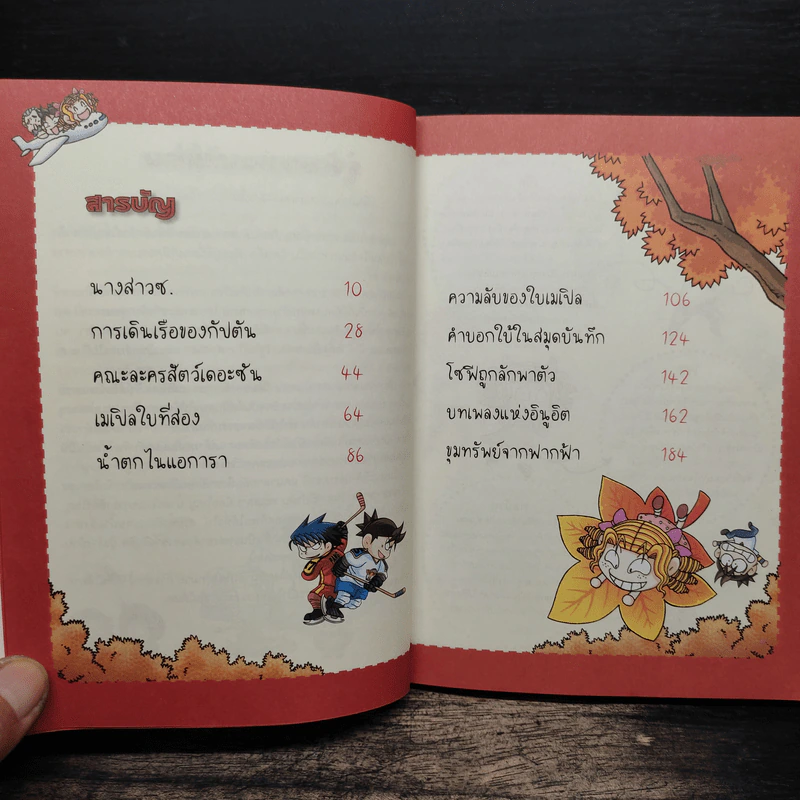 สารบัญ
นางสาวซ. 10
การเดินเรือของกัปตัน 28
คณะละครสัตว์เดอะซัน 44
เมเปิลใบที่สอง 64
น้ำตกไนแอการา 86
ความลับของใบเมเปิล 106
คำบอกใบ้ในสมุดบันทึก 124
โซฟีถูกลักพาตัว 142
บทเพลงแห่งอินูอิต 162
ขุมทรัพย์จากฟากฟ้า 184